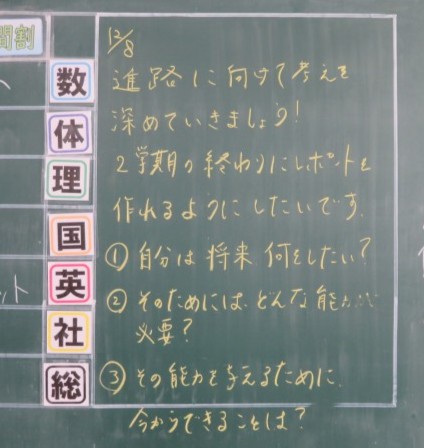 間割
数
体
理
国
英
社
総
ット
12/8
進路に向けて考えを
深めていきましょう!
2学期の終わりにレポートを
作れるようにしたいです.
① 自分は将来何をしたい?
② そのためには、どんな能力が
必要?
③ その能力を与えるために、
今からできることは?